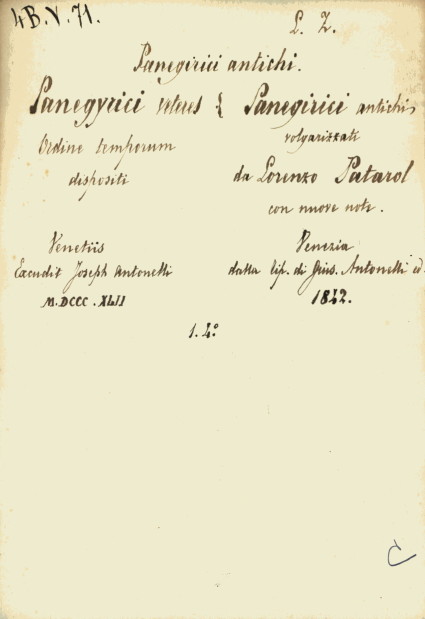 4B.V.71.
L. Z.
Panegirici antichi.
Panegyrici veteres { Panegirici antichi
Ordine temporum
volgarizzati
dispositi
da Lorenzo Patarol
con nuove note.
Venetiis
Venezia
Excudit Joseph Antonelli
dalla tip. di Gius. Antonelli ed.
M.DCCC.XLII
1842.
1. 4º
C